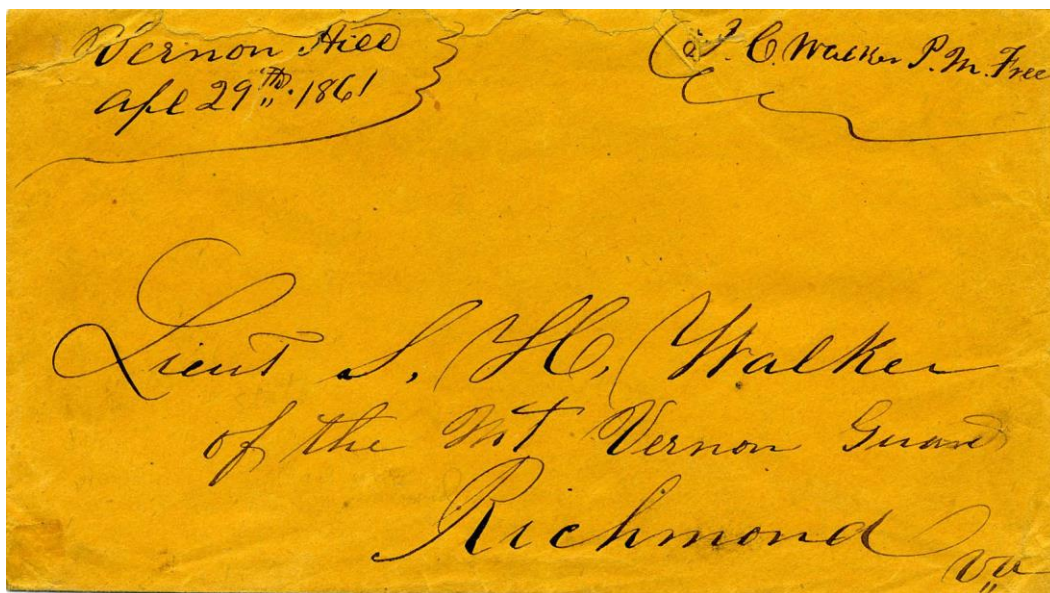 Vernon Hill
Apl 29th. 1861
J. C. Walker P. M. Free
Lieut S. H. Walker
of the Mt Vernon Guard
Richmond
Va